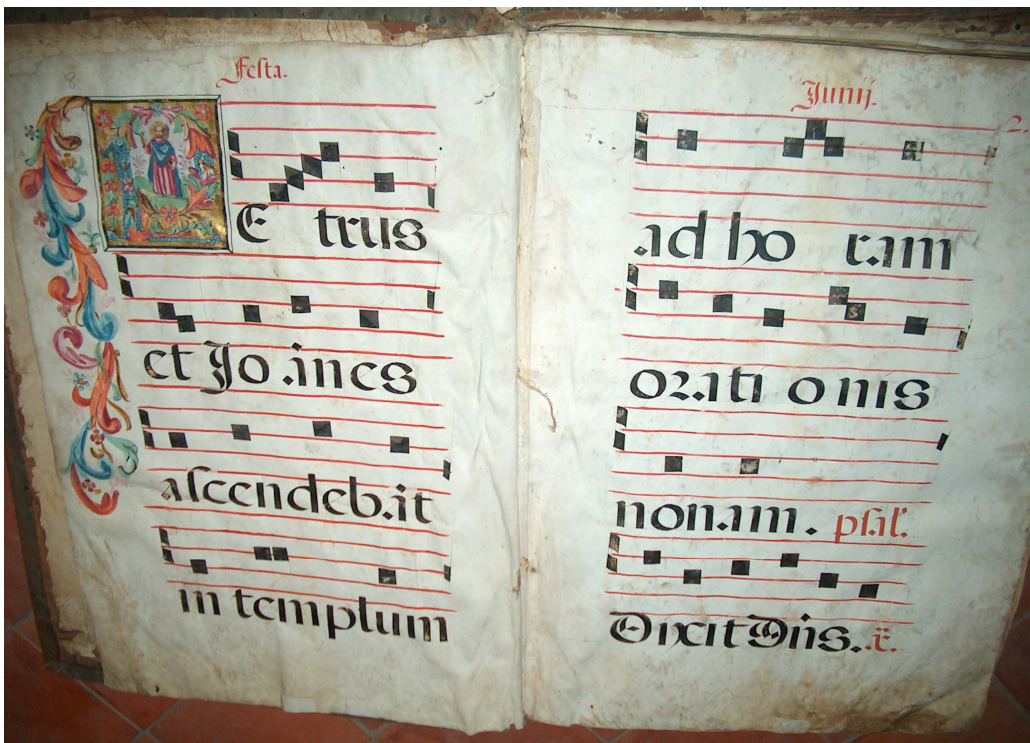 Festa.
PE trus
et Jo anes
ascendebait
in templum
Junij.
ad ho ram
orati onis
nonam. psal.
Dixit Dñs. .ẍ.